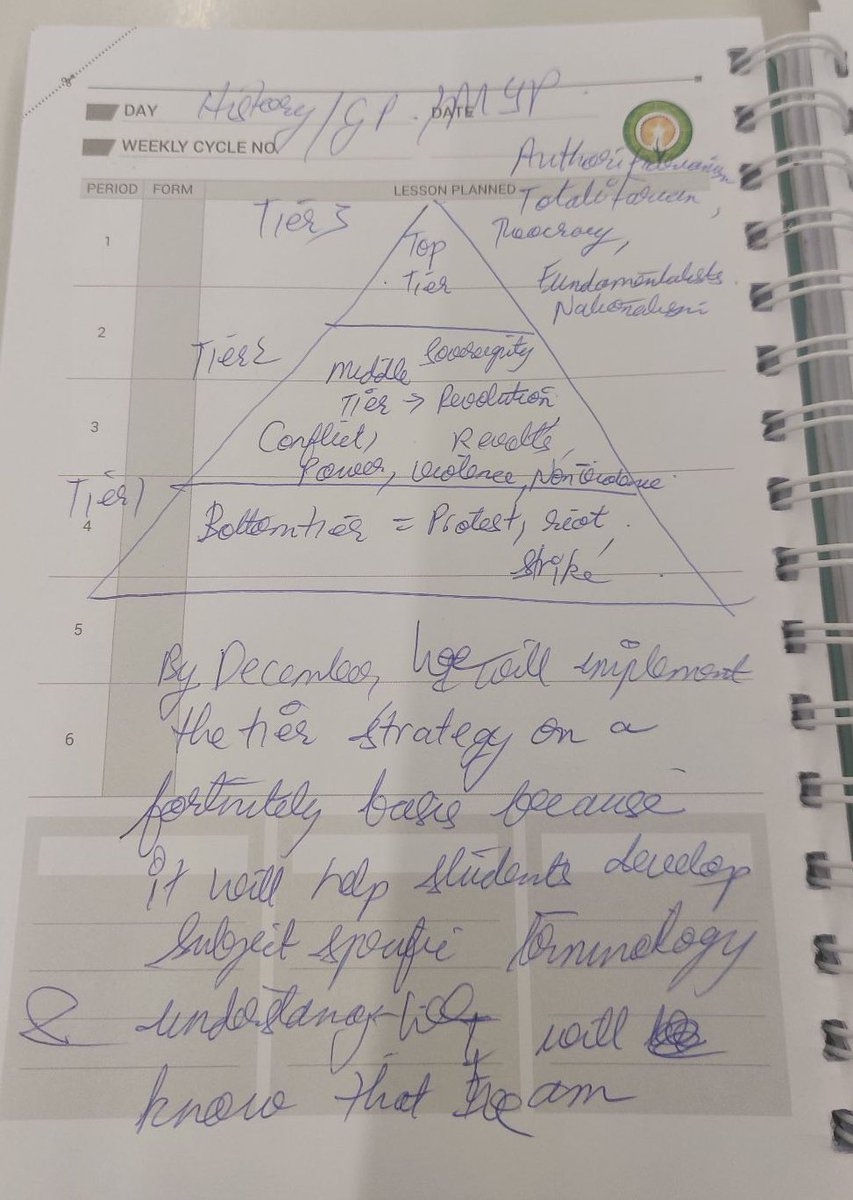 DAY History/GP./MYP DATE
WEEKLY CYCLE NO.
PERIOD FORM LESSON PLANNED
Totalitarian,
Theocracy,
Fundamentalists
Nationalism
Tier 3
Top
Tier
1
2
Tier 2
Sovereignity
Middle
Tier → Revolution,
3
Conflict, Revolts,
Power, violence, Nonviolence.
Tier 1
4
Bottom tier = Protest, riot,
strike
5
By December, we will implement
the tier strategy on a
6
fortnitely basis because
it will help students develop
subject specific terminology
& will
know that am